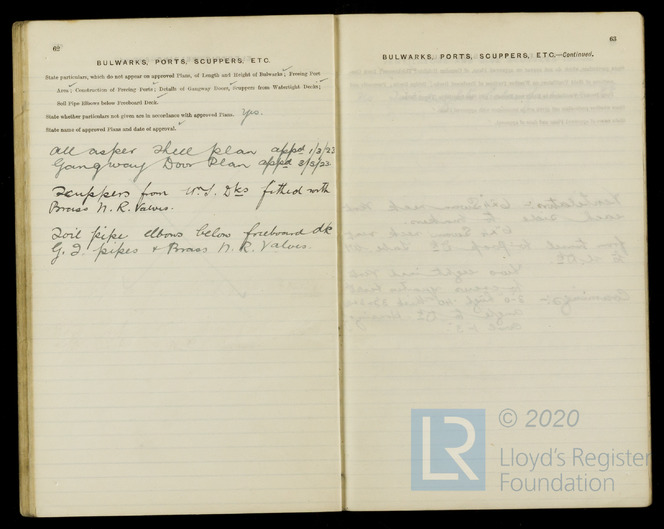 62
BULWARKS, PORTS, SCUPPERS, ETC.
State particulars, which do not appear on approved Plans, of Length and Height of Bulwarks; Freeing Port
Area; Construction of Freeing Ports; Details of Gangway Doors, Scuppers from Watertight Decks;
Soil Pipe Elbows below Freeboard Deck.
State whether particulars not given are in accordance with approved Plans. Yes.
State name of approved Plans and date of approval.
All as per Shell plan appd 1/3/23
Gangway Door Plan appd 2/5/23
Scuppers from W.T. Dks fitted with
Brass N. R. Valves.
Soil pipe elbows below freeboard dk
G. I. pipes & Brass N. R. Valves.
63
BULWARKS, PORTS, SCUPPERS, ETC.—Continued.
LR
© 2020
Lloyd's Register
Foundation